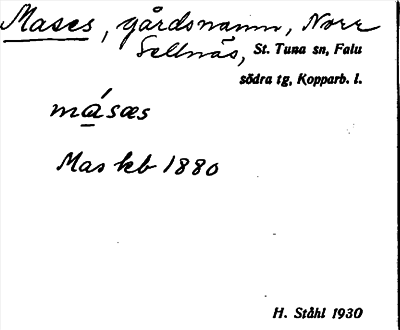 Mases, gårdsnamn, Norr
Sellnäs, St. Tuna sn, Falu
södra tg, Kopparb. l.
másæs
Mas kb 1880
H. Ståhl 1930